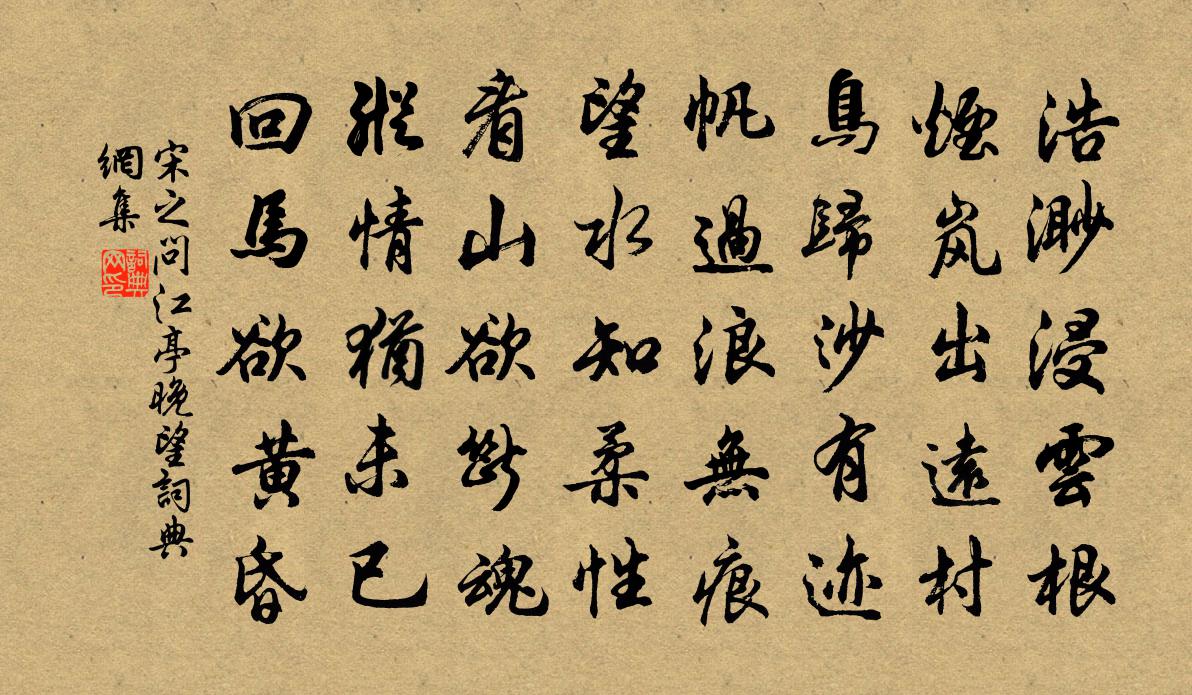 浩渺浸雲根
煙岚出遠村
鳥歸沙有迹
帆過浪無痕
望水知柔性
看山欲斷魂
縱情猶未已
回馬欲黄昏
宋之问江亭晚望詞典
網集
詞典
网印